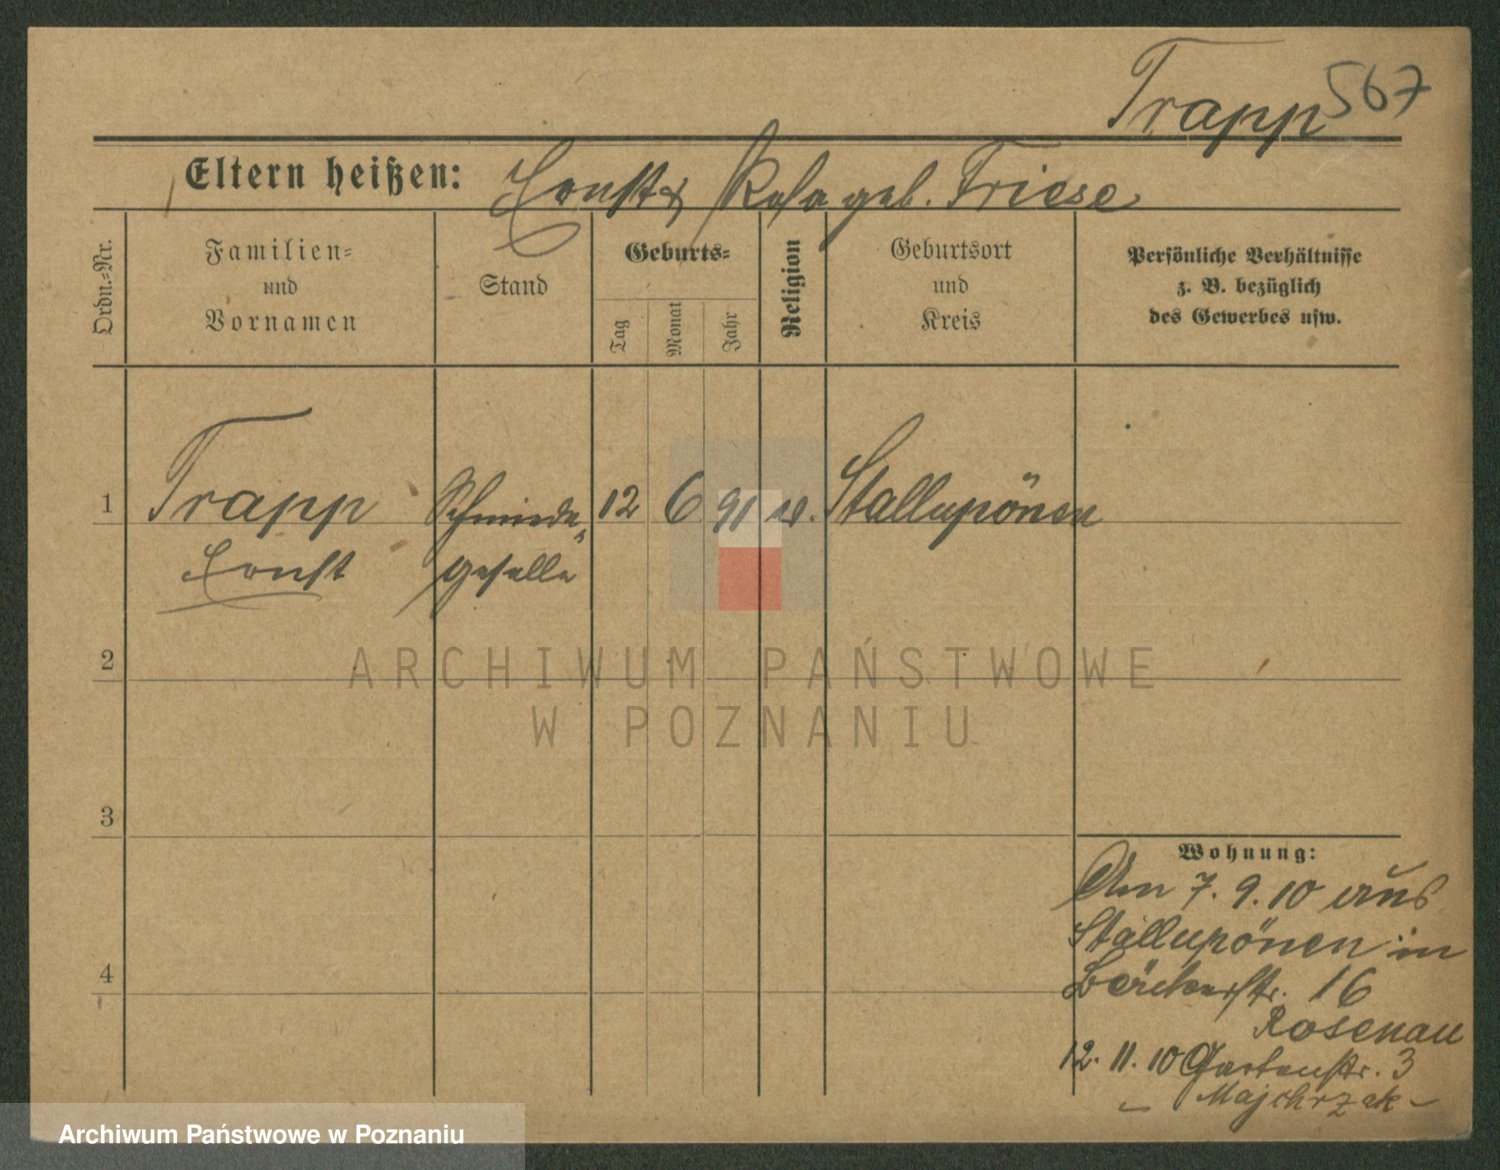 Trapp 567
Eltern heißen: Ernst & Rosa geb. Friese
Ordn.-Nr.
Familien-
und
Vornamen
Stand
Geburts-
Tag
Monat
Jahr
Religion
Geburtsort
und
Kreis
Persönliche Verhältnisse
z. B. bezüglich
des Gewerbes usw.
1 Trapp Schmiede- 12 6 91 ev. Stallupönen
Ernst geselle
2
3
4
Wohnung:
Am 7.9.10 aus
Stallupönen in
Bäckerstr. 16
Rosenau
12.11.10 Gartenstr. 3
- Majchrzak -
ARCHIWUM PAŃSTWOWE
W POZNANIU
Archiwum Państwowe w Poznaniu